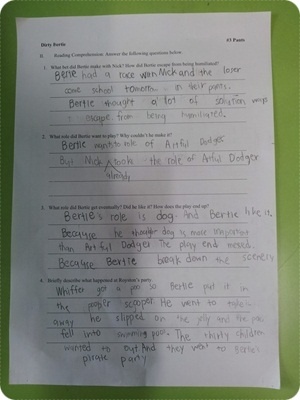 Dirty Bertie #3 Pants
B. Reading Comprehension: Answer the following questions below.
1. What bet did Bertie make with Nick? How did Bertie escape from being humiliated?
Bertie had a race with Nick and the loser
come school tomorrow in their pants.
Bertie thought a lot of solution
escape from being humiliated.
2. What role did Bertie want to play? Why couldn't he make it?
Bertie want to role of Artful Dodger
But Nick already took the role of Artful Dodger
3. What role did Bertie get eventually? Did he like it? How does the play end up?
Bertie's role is dog. And Bertie like it.
Because he thought dog is more important
than Artful Dodger. The play end messed.
Because Bertie break down the scenery
4. Briefly describe what happened at Royston's party.
Whiffer got a poo so Bertie put it in
the pooper scooper. He want to take it
away he slipped on the jelly and the poo
fell into swimming pool. The thirty children
wanted to out And they went to Bertie's
pirate party